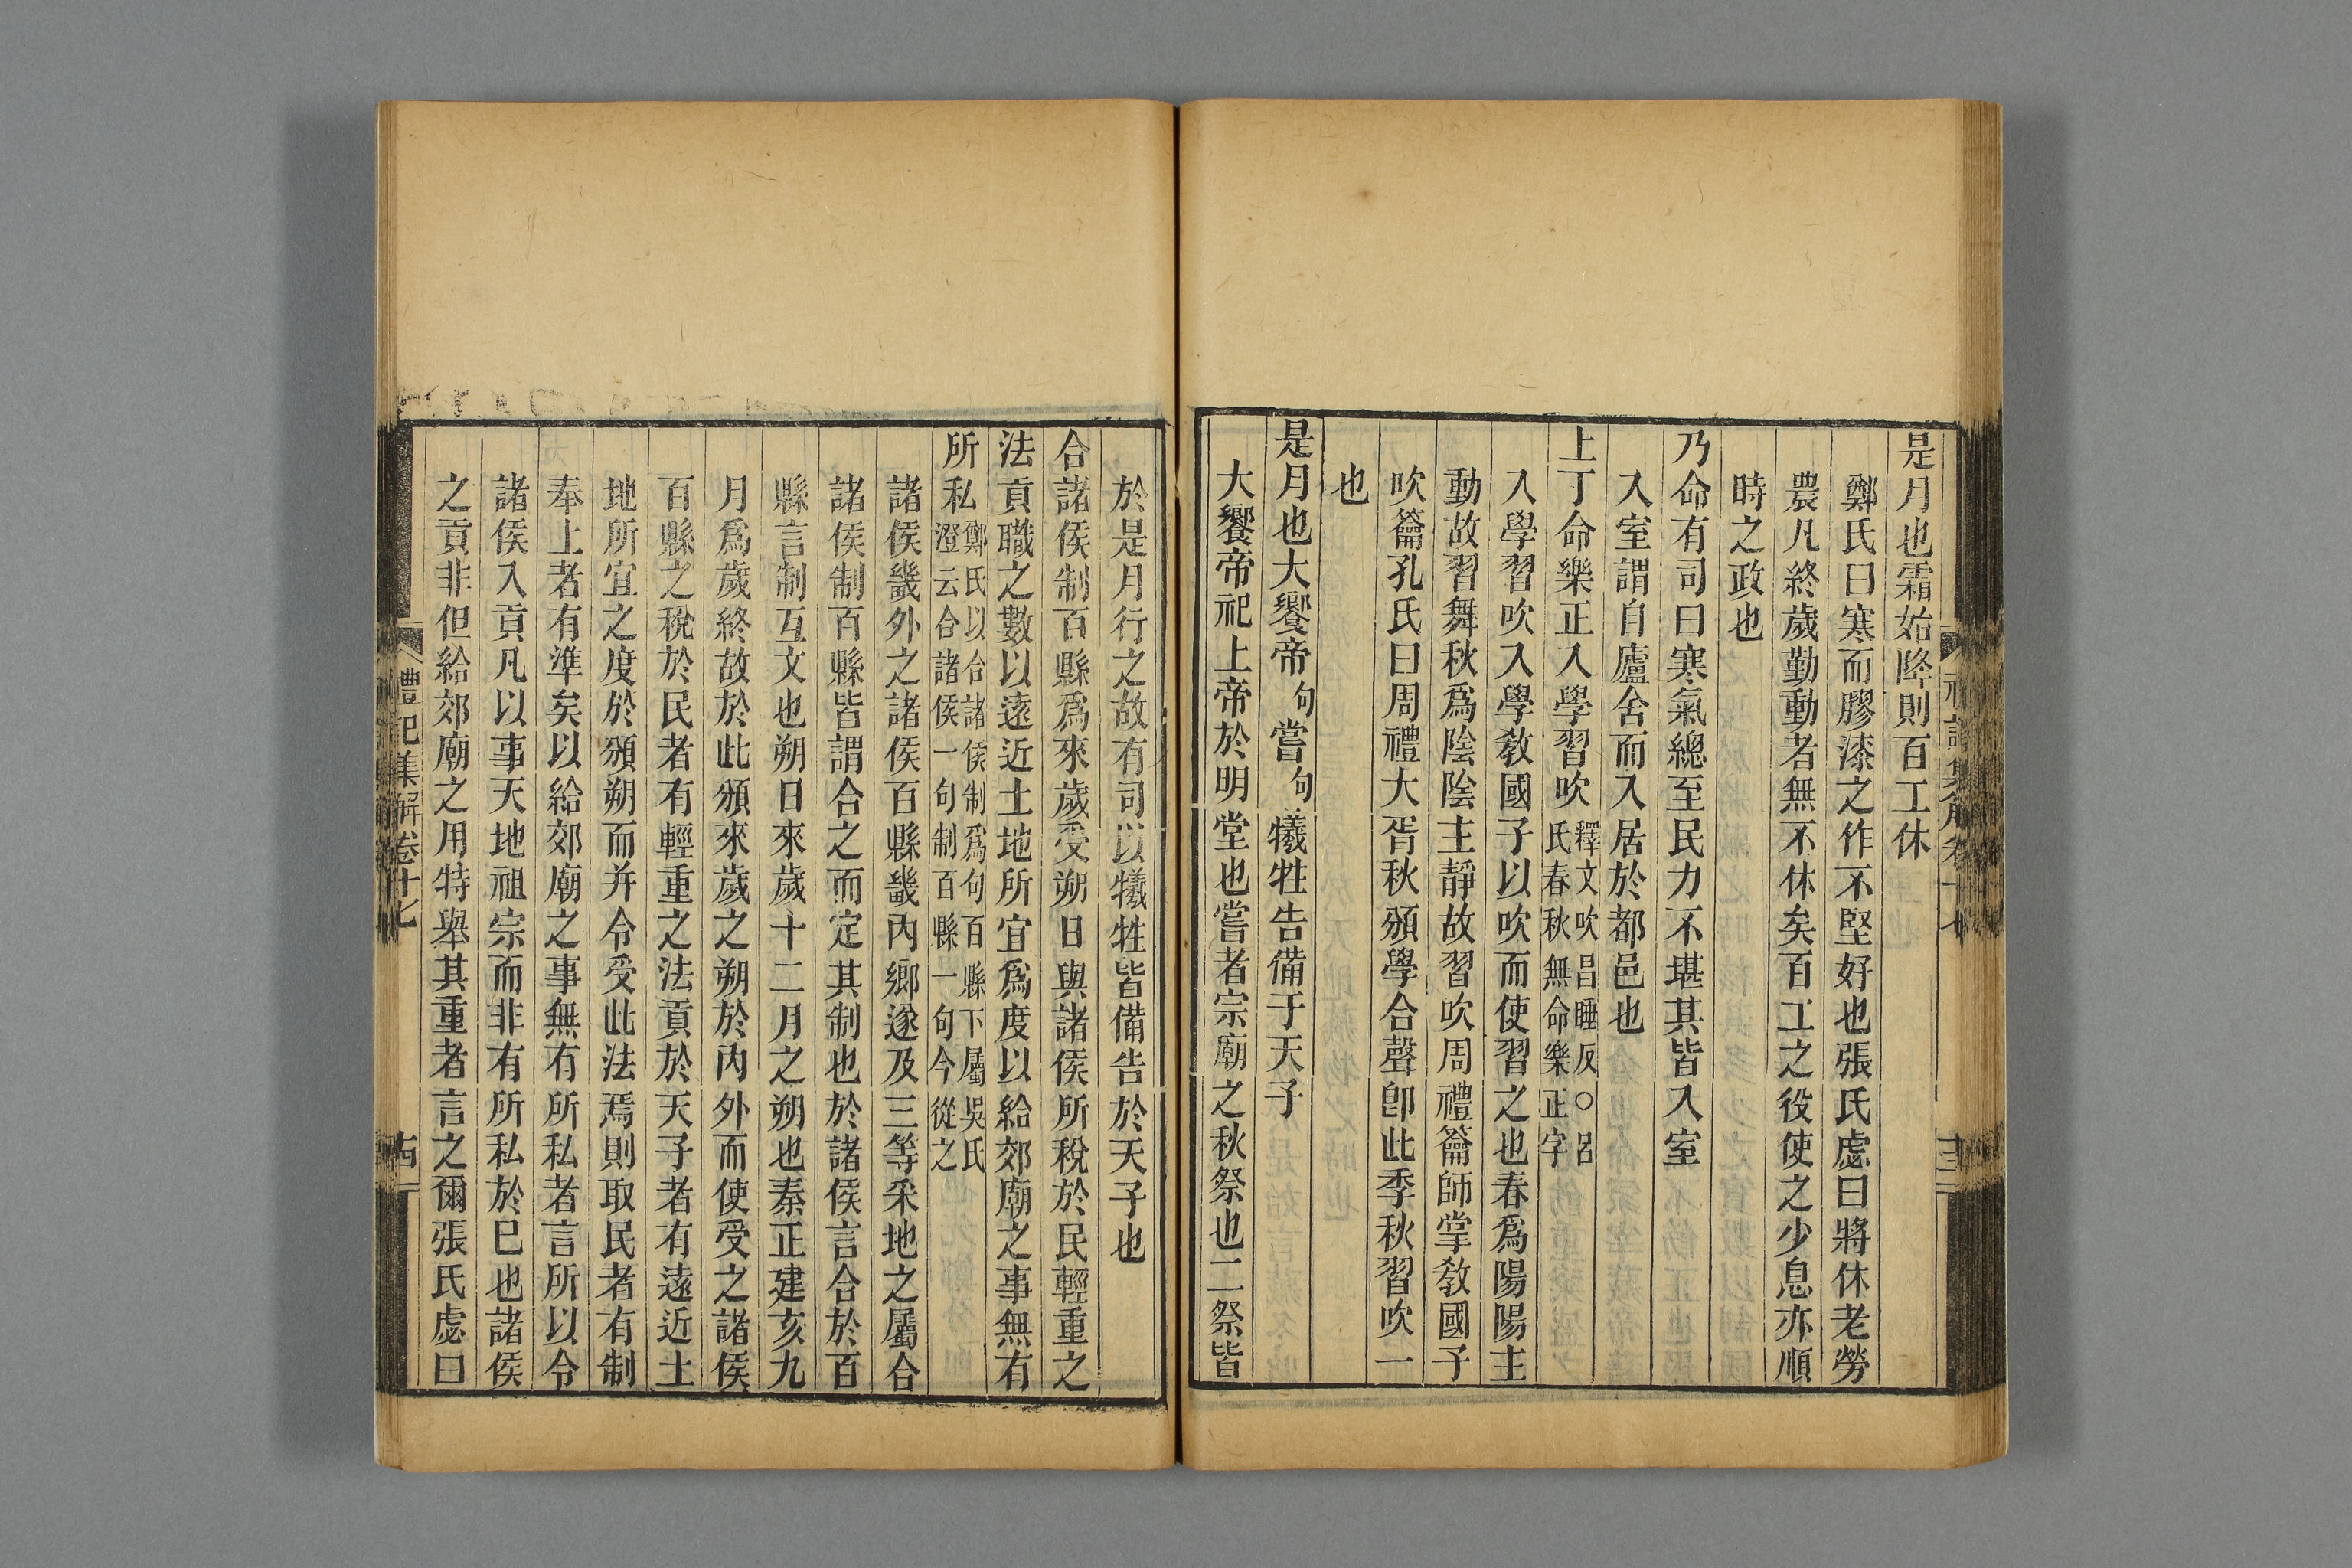 是月也霜始降則百工休
鄭氏曰寒而膠漆之作不堅好也張氏虙曰將休老勞
農凡終歲勤動者無不休矣百工之役使之少息亦順
時之政也
乃命有司曰寒氣總至民力不堪其皆入室
入室謂自廬舍而入居於都邑也
上丁命樂正入學習吹釋文吹昌睡反○呂
氏春秋無命樂正字
入學習吹入學敎國子以吹而使習之也春爲陽陽主
動故習舞秋爲陰陰主靜故習吹周禮籥師掌敎國子
吹籥孔氏曰周禮大胥秋頒學合聲卽此季秋習吹一
也
是月也大饗帝句嘗句犧牲告備于天子
大饗帝祀上帝於明堂也嘗者宗廟之秋祭也二祭皆
於是月行之故有司以犧牲皆備告於天子也
合諸侯制百縣爲來歲受朔日與諸侯所稅於民輕重之
法貢職之數以遠近土地所宜爲度以給郊廟之事無有
所私鄭氏以合諸侯制爲句百縣下屬吳氏
澄云合諸侯一句制百縣一句今從之
諸侯畿外之諸侯百縣畿內鄉遂及三等采地之屬合
諸侯制百縣皆謂合之而定其制也於諸侯言合於百
縣言制互文也朔日來歲十二月之朔也秦正建亥九
月爲歲終故於此頒來歲之朔於內外而使受之諸侯
百縣之稅於民者有輕重之法貢於天子者有遠近土
地所宜之度於頒朔而并令受此法焉則取民者有制
奉上者有準矣以給郊廟之事無有所私者言所以令
諸侯入貢凡以事天地祖宗而非有所私於巳也諸侯
之貢非但給郊廟之用特舉其重者言之爾張氏虙曰
禮記集解卷十七